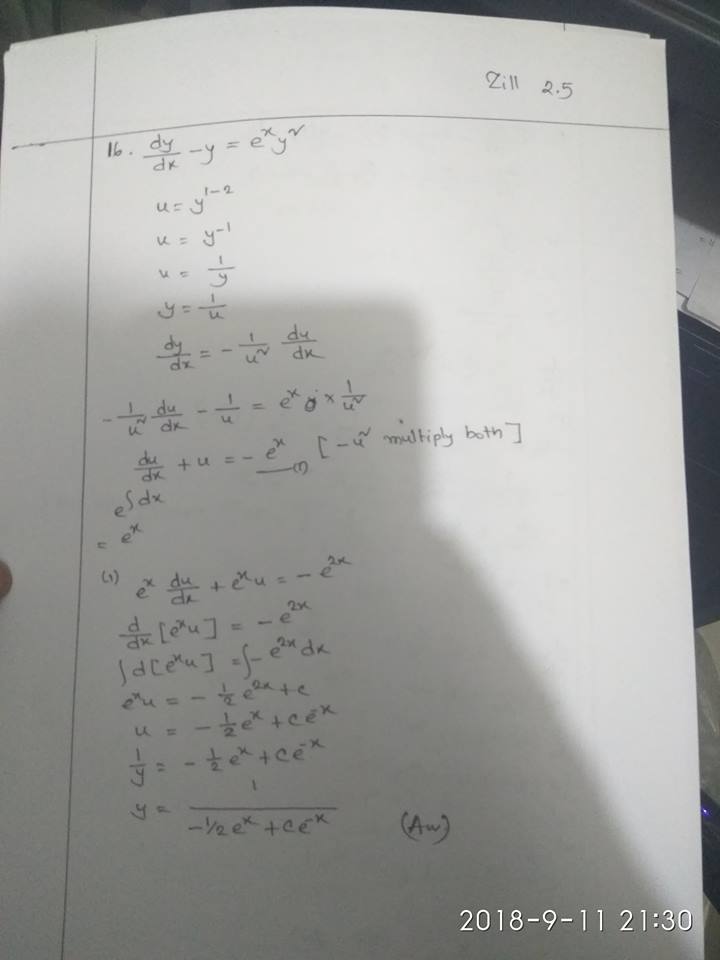 Zill 2.5
16. dy/dx - y = e^x y^2
u = y^1-2
u = y^-1
u = 1/y
y = 1/u
dy/dx = - 1/u^2 du/dx
- 1/u^2 du/dx - 1/u = e^x × 1/u^2
du/dx + u = - e^x —(1) [ -u^2 multiply both ]
e^∫dx
= e^x
(1) e^x du/dx + e^x u = - e^2x
d/dx [e^x u] = - e^2x
∫d[e^x u] = ∫- e^2x dx
e^x u = - 1/2 e^2x + c
u = - 1/2 e^x + ce^-x
1/y = - 1/2 e^x + ce^-x
y = 1/(-1/2 e^x + ce^-x) (Aw)
2018-9-11 21:30